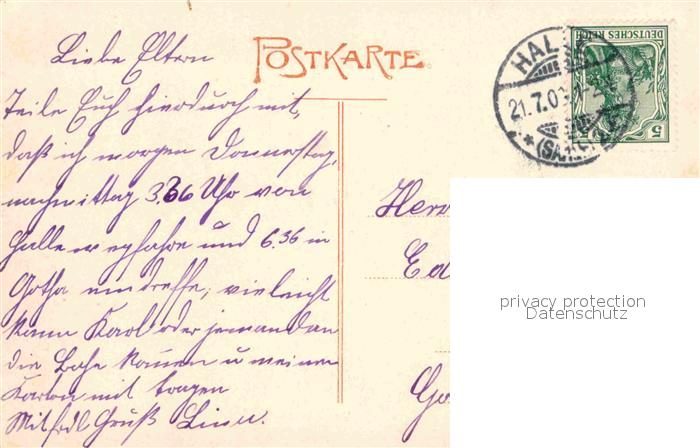 POSTKARTE
Liebe Eltern
Teile Euch hierdurch mit,
daß ich morgen Donnerstag,
nachmittag 3.36 Uhr von
Halle wegfahre und 6.36 in
Gotha eintreffe; vielleicht
kann Karl oder jemand an
die Bahn kommen u meinen
Karton mit tragen
Mit frdl Gruß
Herr
Ed
Go
HAL
21.7.0
(SAALE
DEUTSCHES REICH
5
privacy protection
Datenschutz